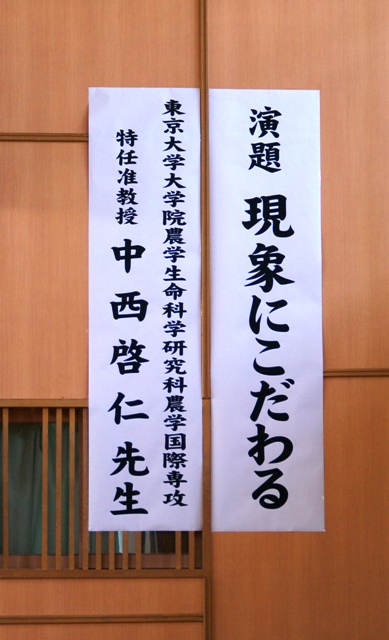 演題 現象にこだわる
東京大学大学院農学生命科学研究科農学国際専攻
特任准教授 中西啓仁先生